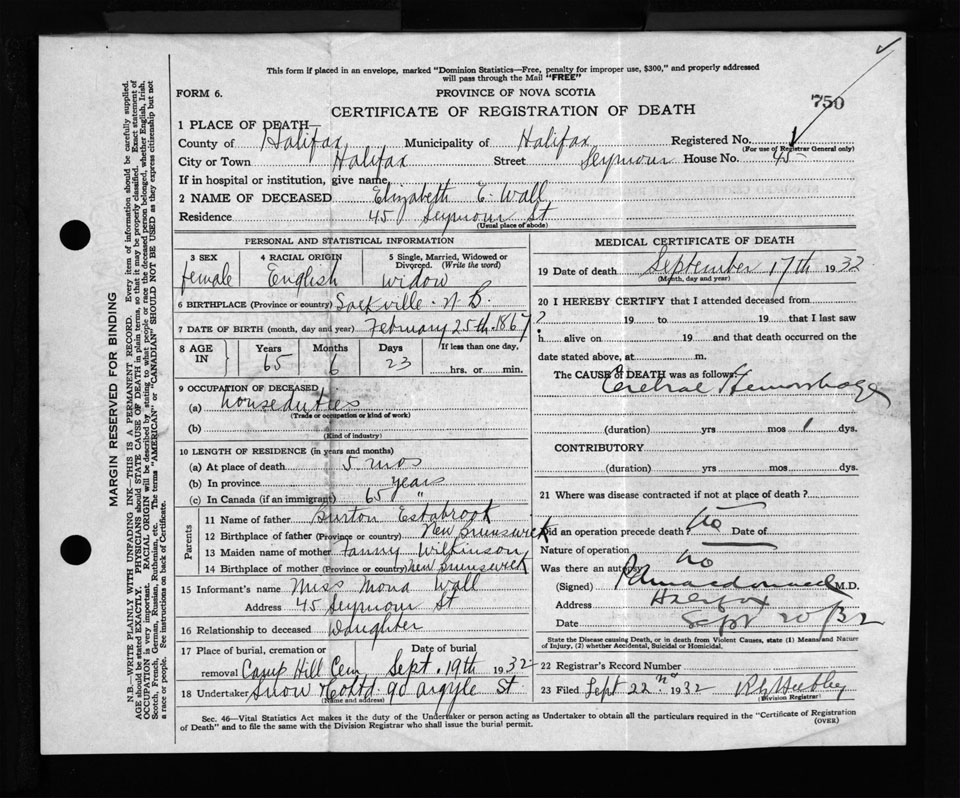 This form if placed in an envelope, marked "Dominion Statistics—Free, penalty for improper use, $300," and properly addressed
will pass through the Mail "FREE"
FORM 6.
PROVINCE OF NOVA SCOTIA
750
CERTIFICATE OF REGISTRATION OF DEATH
1 PLACE OF DEATH—
County of Halifax Municipality of Halifax Registered No.
(For use of Registrar General only)
City or Town Halifax Street Seymour House No. 45
If in hospital or institution, give name
2 NAME OF DECEASED Elizabeth E. Wall
Residence 45 Seymour St
(Usual place of abode)
PERSONAL AND STATISTICAL INFORMATION
3 SEX 4 RACIAL ORIGIN 5 Single, Married, Widowed or
Divorced. (Write the word)
female English Widow
6 BIRTHPLACE (Province or country) Sackville. N B.
7 DATE OF BIRTH (month, day and year) February 25th. 1867
8 AGE IN Years Months Days If less than one day,
65 6 23 hrs. or min.
9 OCCUPATION OF DECEASED
(a) house duties
(Trade or occupation or kind of work)
(b)
(Kind of industry)
10 LENGTH OF RESIDENCE (in years and months)
(a) At place of death 5 mos
(b) In province years
(c) In Canada (if an immigrant) 65 "
Parents
11 Name of father Burton Estabrook
12 Birthplace of father (Province or country) New Brunswick
13 Maiden name of mother Fanny Wilkinson
14 Birthplace of mother (Province or country) New Brunswick
15 Informant's name Miss Mona Wall
Address 45 Seymour St
16 Relationship to deceased Daughter
17 Place of burial, cremation or Date of burial
removal Camp Hill Cem Sept. 19th 1932
18 Undertaker Snow & Co Ltd. 90 Argyle St
(Name and address)
MEDICAL CERTIFICATE OF DEATH
19 Date of death September 17th 1932
(Month, day and year)
20 I HEREBY CERTIFY that I attended deceased from
? 19 to 19 that I last saw
h alive on 19 and that death occurred on the
date stated above, at m.
The CAUSE of DEATH was as follows:
Cerebral Hemorrhage
(duration) yrs mos 1 dys.
CONTRIBUTORY
(duration) yrs mos dys.
21 Where was disease contracted if not at place of death?
Did an operation precede death? No Date of
Nature of operation
Was there an autopsy no
(Signed) M.D.
Address Halifax
Date Sept 20/32
State the Disease causing Death, or in death from Violent Causes, state (1) Means and Nature
of Injury, (2) whether Accidental, Suicidal or Homicidal.
22 Registrar's Record Number
23 Filed Sept 22nd 1932
(Division Registrar)
Sec. 46—Vital Statistics Act makes it the duty of the Undertaker or person acting as Undertaker to obtain all the particulars required in the "Certificate of Registration
of Death" and to file the same with the Division Registrar who shall issue the burial permit.
(OVER)
MARGIN RESERVED FOR BINDING
N.B.—WRITE PLAINLY WITH UNFADING INK—THIS IS A PERMANENT RECORD. Every item of information should be carefully supplied.
AGE should be stated EXACTLY. PHYSICIANS should STATE CAUSE OF DEATH in plain terms, so that it may be properly classified. Exact statement of
OCCUPATION is very important. RACIAL ORIGIN will be described by stating to what people or race the deceased person belonged, whether English, Irish,
Scotch, French, German, Russian, Ruthenian, etc. The terms "AMERICAN" or "CANADIAN" SHOULD NOT BE USED as they express citizenship but not
a race or people. See instructions on back of Certificate.